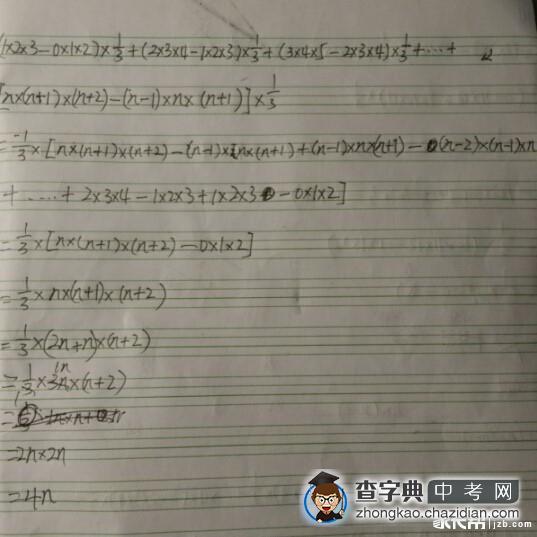 (1×2×3-0×1×2)×1/3+(2×3×4-1×2×3)×1/3+(3×4×5-2×3×4)×1/3+…+
[n×(n+1)×(n+2)-(n-1)×n×(n+1)]×1/3
=1/3×[n×(n+1)×(n+2)-(n-1)×n×(n+1)+(n-1)×n×(n+1)-(n-2)×(n-1)×n
+……+2×3×4-1×2×3+1×2×3-0×1×2]
=1/3×[n×(n+1)×(n+2)-0×1×2]
=1/3×n×(n+1)×(n+2)
=1/3×(2n+n)×(n+2)
=1/3×3n×(n+2)
=2n×2n
=4n
查字典中考网
zhongkao.chazidian.com
jzb.com